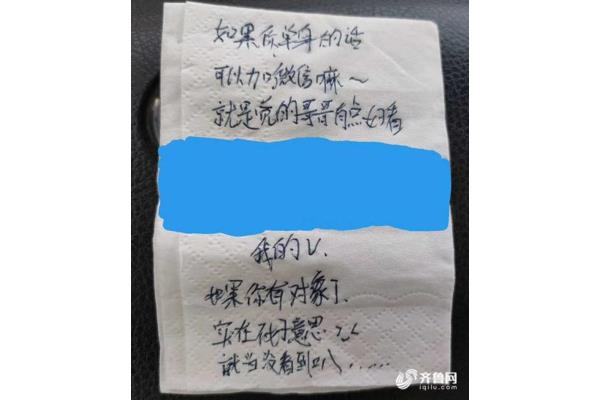 如果你单身的话
可以加微信嘛～
就是觉的哥哥有点好看
我的V.
如果你有对象了.
实在不好意思
就当没看到叭......
齐鲁网
iqilu.com